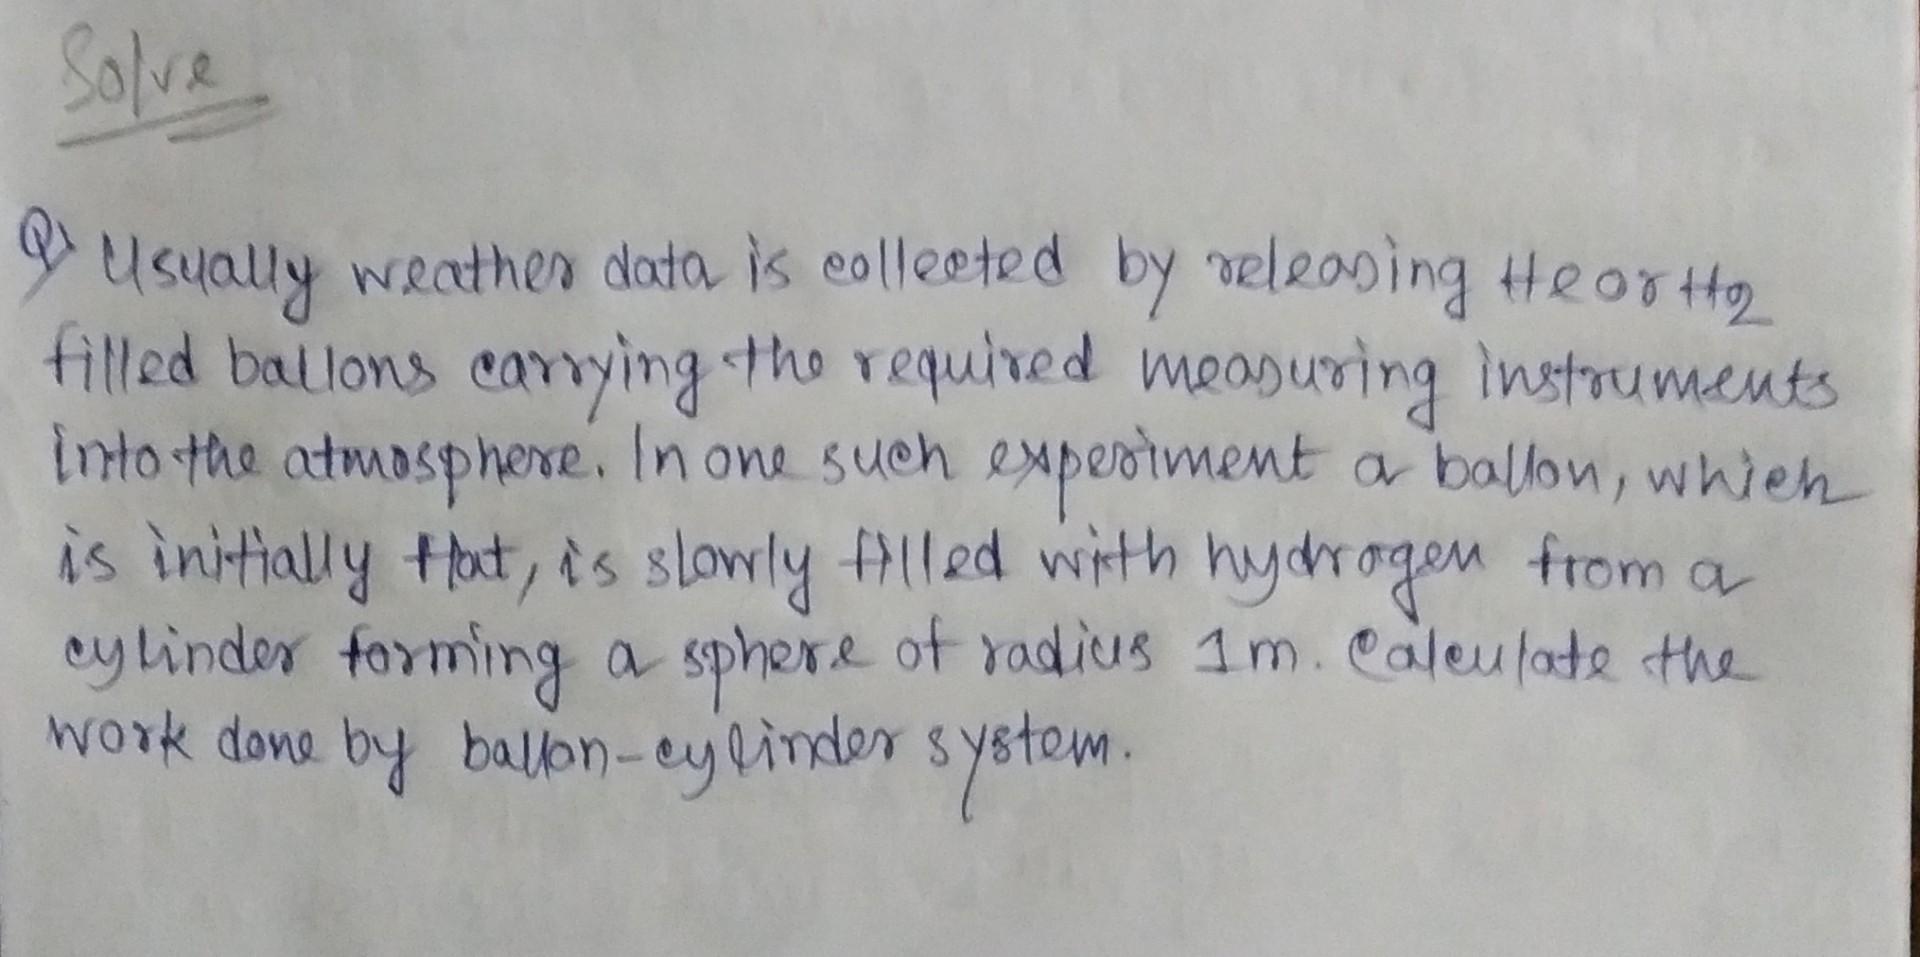 Solve
Q) Usually weather data is collected by releasing He or H2
filled ballons carrying the required measuring instruments
into the atmosphere. In one such experiment a ballon, which
is initially flat, is slowly filled with hydrogen from a
cylinder forming a sphere of radius 1m. Calculate the
work done by ballon-cylinder system.